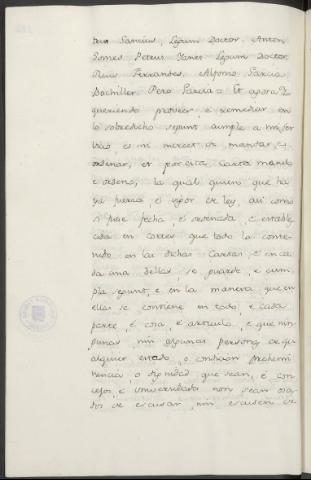 Sancius, Legum Doctor, Anton
Gomes, Petrus Yanes Legum Doctor,
Ruis Ferrandes, Alfonso Garcia
Bachiller, Pero Garcia: Et agora Yo
queriendo proveer, e remediar en
lo sobredicho segunt cumple a mi ser
vicio, es mi merced de mandar, e
ordenar, et por esta Carta mando
e ordeno, la qual quiero que ha
ya fuerza, e vigor de ley, asi como
si fuese fecha, e ordenada, e estable
cida en cortes que todo lo conte
nido en las dichas Cartas, e en ca
da una dellas se guarde, e cum
pla segunt, e en la manera que en
ellas se contiene en todo, e cada
parte, e cosa, e articulo, e que nin
gunas nin algunas personas de qu
alquier estado, o condicion prehemi
nencia, o dignidad que sean, e con
cejos, e Universidades non sean osa
dos de escusar, nin escusen de